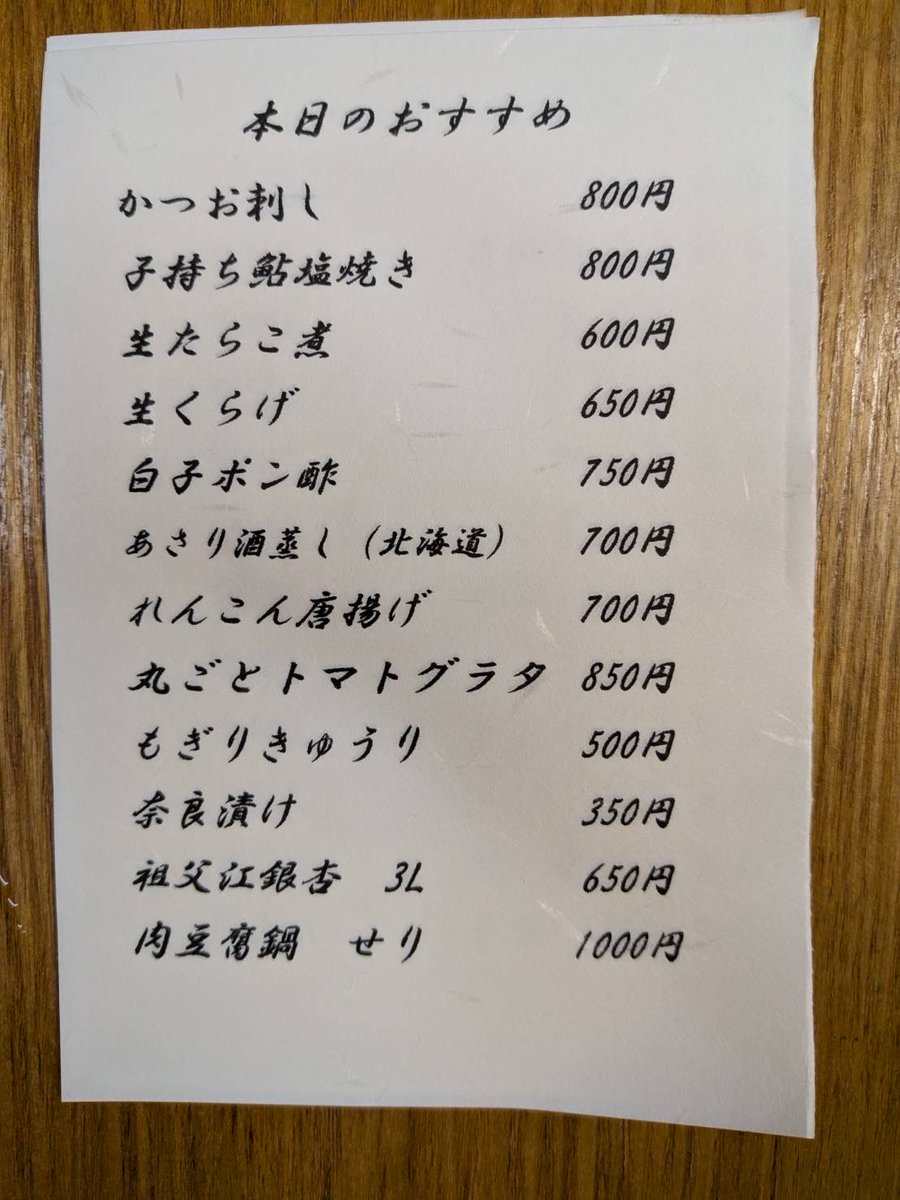 本日のおすすめ
かつお刺し 800円
子持ち鮎塩焼き 800円
生たらこ煮 600円
生くらげ 650円
白子ポン酢 750円
あさり酒蒸し（北海道） 700円
れんこん唐揚げ 700円
丸ごとトマトグラタ 850円
もぎりきゅうり 500円
奈良漬け 350円
祖父江銀杏 3L 650円
肉豆腐鍋 せり 1000円